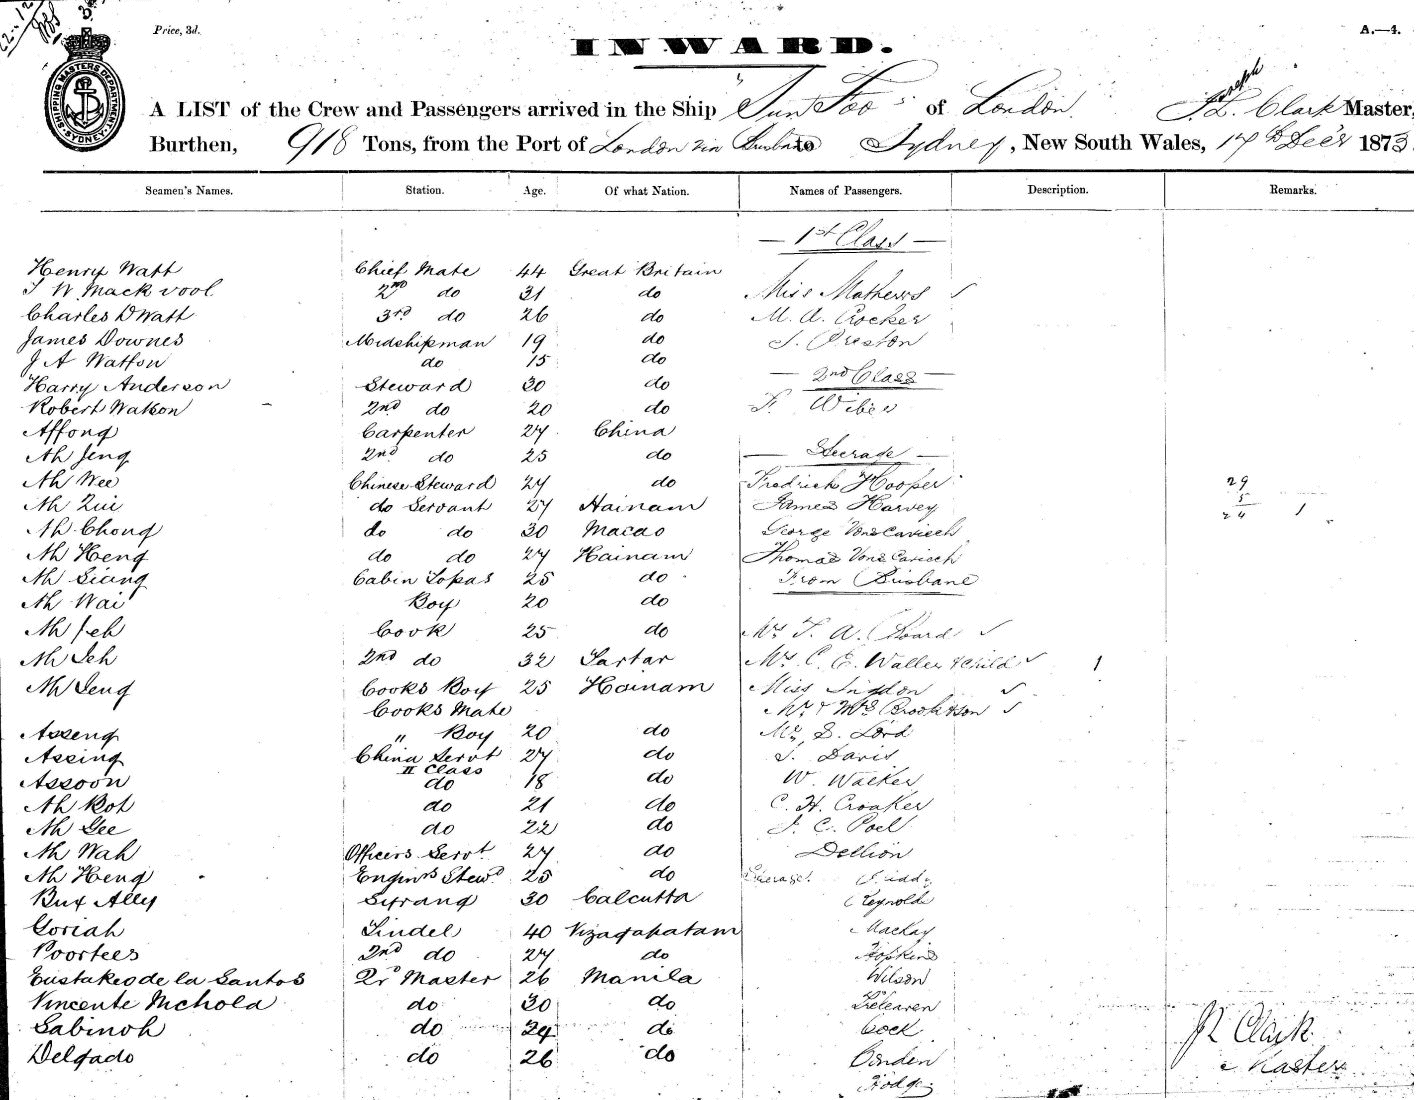 Price, 3d.
A.—4.
INWARD.
SHIPPING MASTERS DEPARTMENT SYDNEY
A LIST of the Crew and Passengers arrived in the Ship "Sun Foo" of London Joseph J. L. Clark Master,
Burthen, 918 Tons, from the Port of London via Brisbane to Sydney, New South Wales, 17th Decr 1873
Seamen's Names. Station. Age. Of what Nation. Names of Passengers. Description. Remarks.
— 1st Class —
Henry Watt Chief Mate 44 Great Britain
2nd do 31 do Miss Mathews ✓
Charles D Watt 3rd do 26 do M. A. Crocker
James Downes Midshipman 19 do J. Preston
J A Watson do 15 do
— 2nd Class —
Harry Anderson Steward 30 do
Robert Watson 2nd do 20 do F. Wiber
Affong Carpenter 27 China
Ah Jeng 2nd do 25 do — Steerage —
Ah Wee Chinese Steward 27 do Fredrick Hooper 29
Ah Lui do Servant 27 Hainam James Harvey 5
24 1
Ah Chong do do 30 Macao George
Ah Heng do do 27 Hainam Thomas
Ah Siang Cabin Topas 25 do From Brisbane
Ah Wai Boy 20 do
Ah Jeh Cook 25 do Mr T. A. Board ✓
Ah Seh 2nd do 32 Tartar Mr C. E. Waller & Child ✓ 1
Ah Seng Cooks Boy 25 Hainam Miss Ingdon ✓
Cooks Mate Mr & Mrs Brook & son ✓
Asseng " Boy 20 do Mr S. Lord
Assing China Servt 27 do J. Davis
II Class
Assoon do 18 do W. Walker
Ah Bot do 21 do C. H. Croaker
Ah Gee do 22 do J. C. Poel
Ah Wah Officers Servt 27 do Dellion
Ah Heng Engin'rs Stewd 25 do Steerage.
Bux Ally Syrang 30 Calcutta Reynolds
Goriah Tindel 40 Vizagapatam Mackay
Poortees 2nd do 27 do Hopkins
Eustakeo de la Santos Qr Master 26 Manila Wilson
Vincente Nichola do 30 do
Sabinoh do 34 do Cock
Delgado do 26 do
Hodge
J L Clark
Master